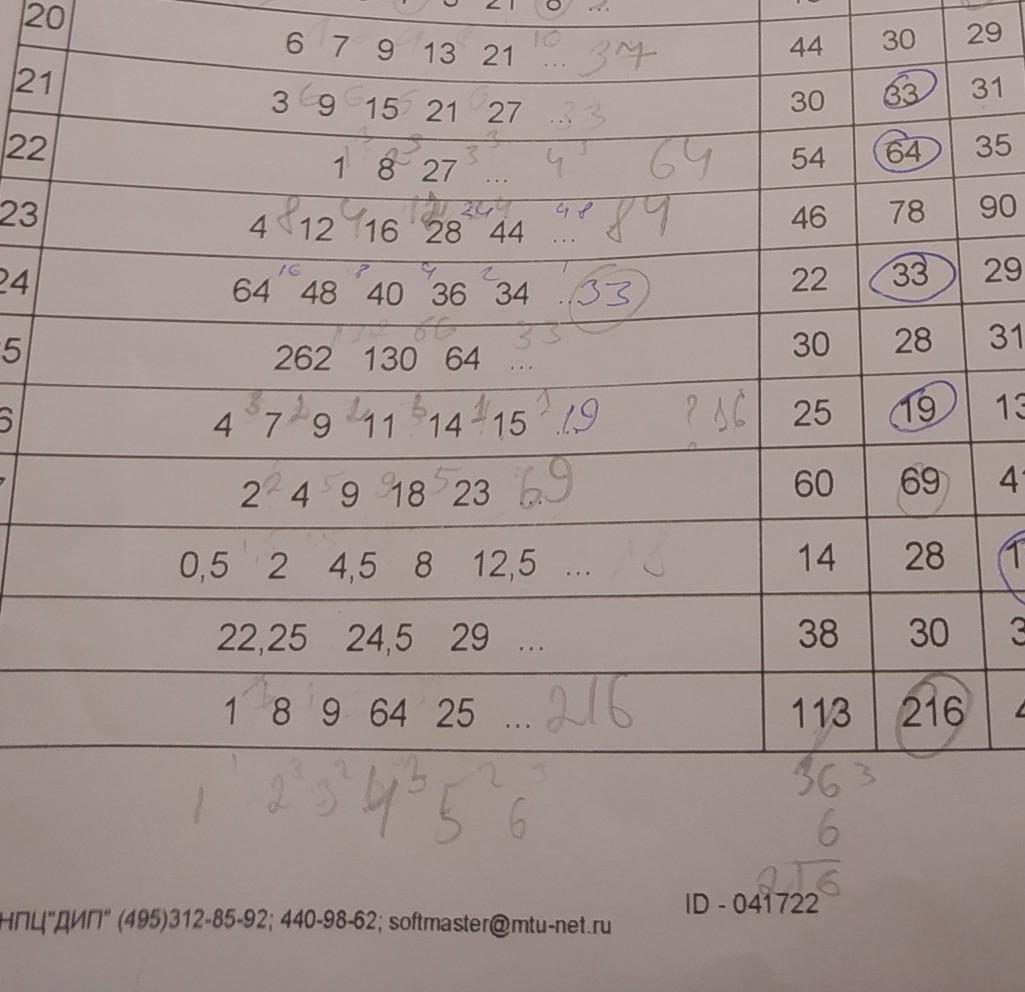 20 6 7 9 13 21 ... 37 44 30 29
21 3 9 15 21 27 ... 33 30 33 31
22 1 8 27 ... 64 54 64 35
23 4 8 12 4 16 28 44 48 ... 84 46 78 90
24 64 16 48 8 40 4 36 2 34 1 ... 33 22 33 29
5 262 130 64 ... 33 30 28 31
6 4 3 7 2 9 2 11 3 14 1 15 ... 19 ? 16 25 19 13
2 2 4 5 9 9 18 5 23 ... 69 60 69 4
0,5 2 4,5 8 12,5 ... 14 28 1
22,25 24,5 29 ... 38 30 3
1 8 9 64 25 ... 216 113 216
1 2³ 3² 4³ 5² 6³ 36 3
6
216
ID - 041722
НПЦ"ДИП" (495)312-85-92; 440-98-62; softmaster@mtu-net.ru